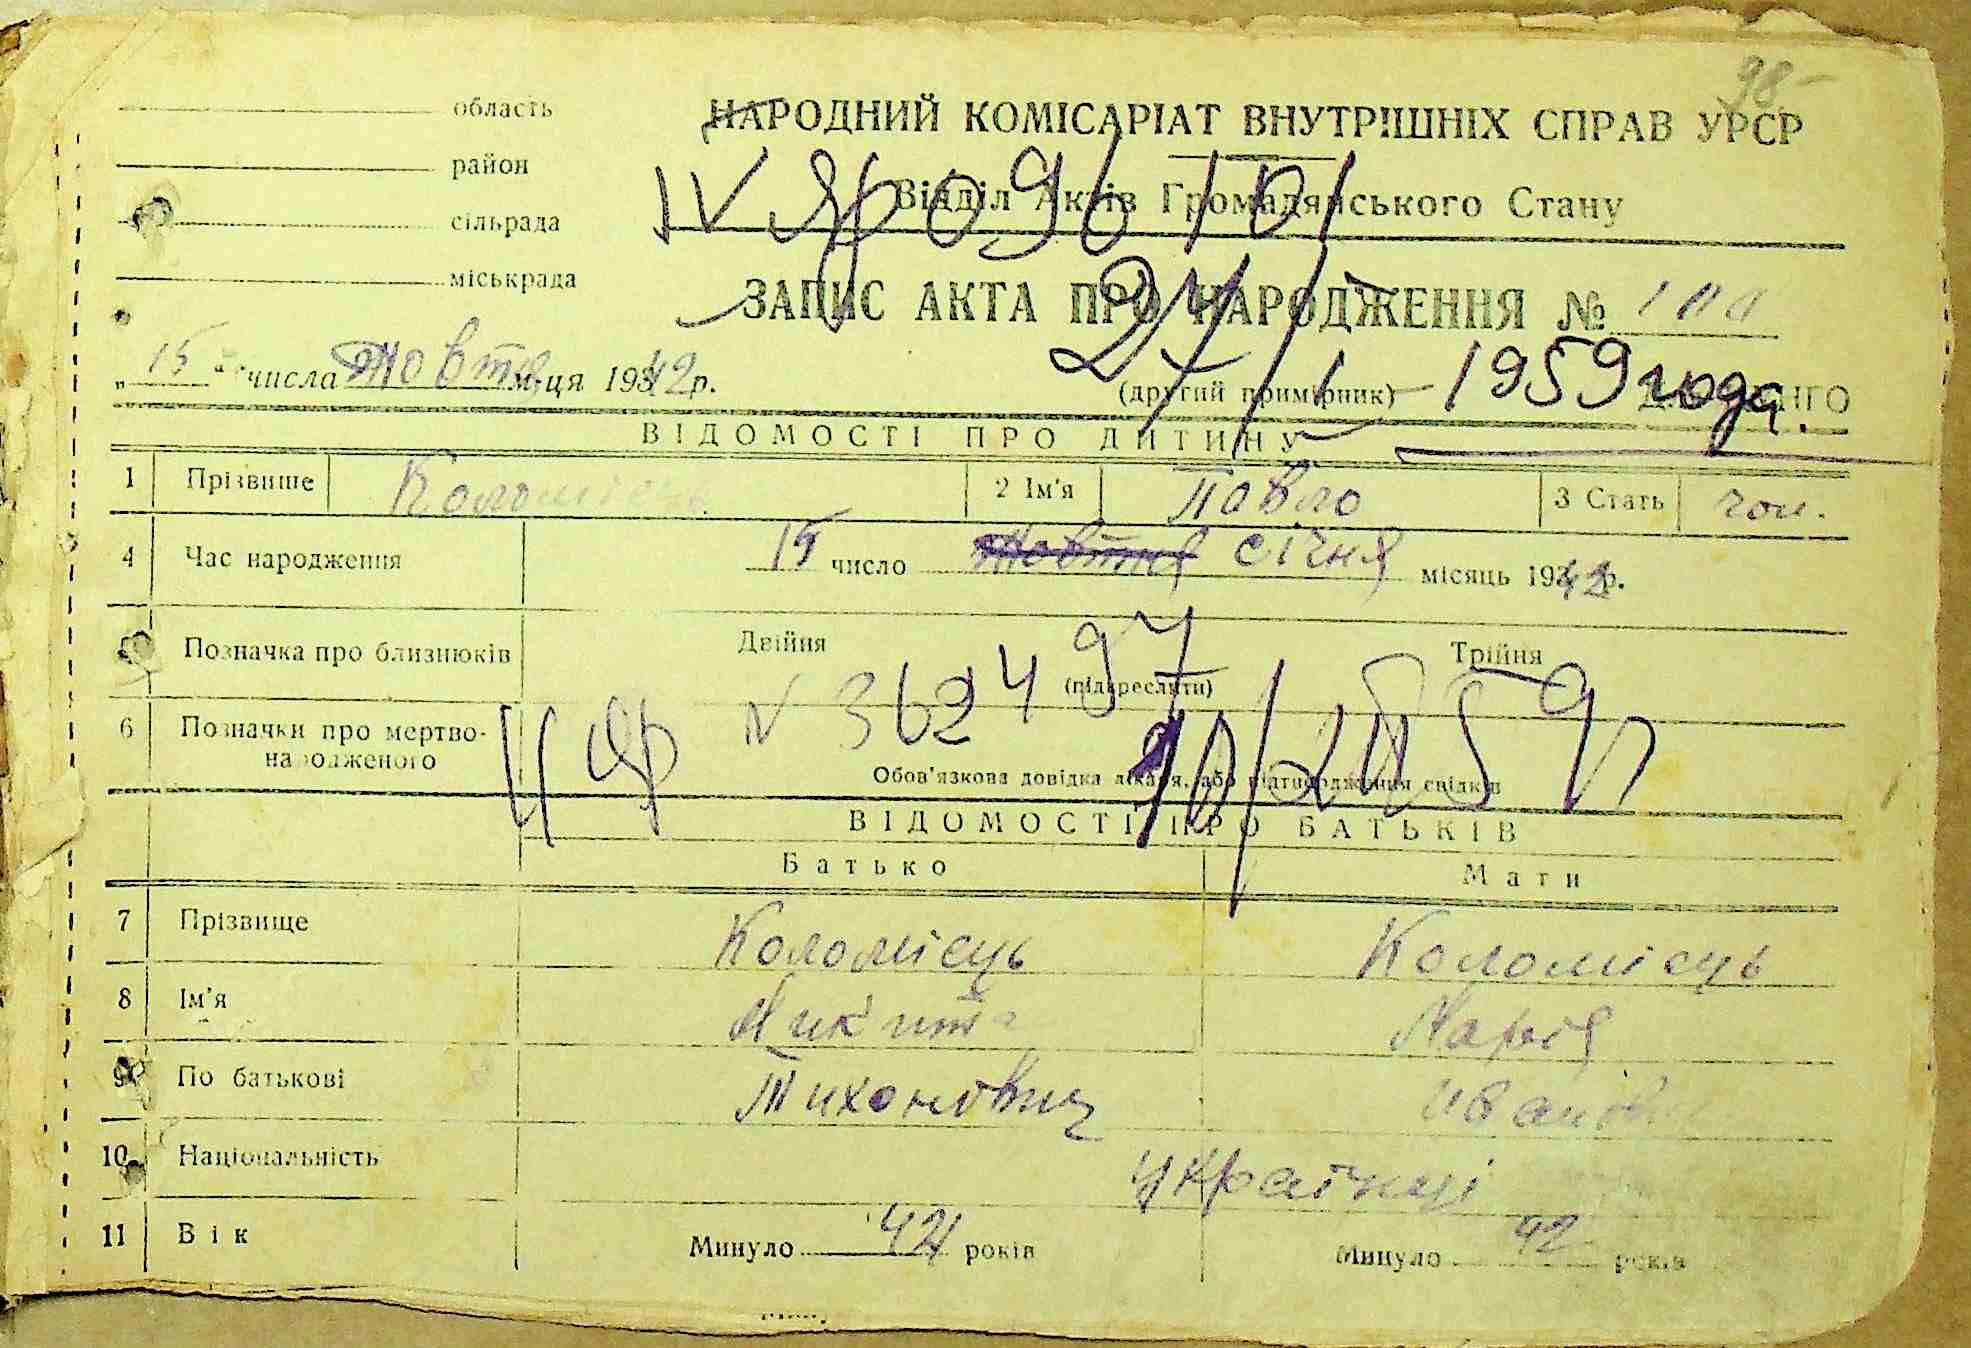 98
область
НАРОДНИЙ КОМІСАРІАТ ВНУТРІШНІХ СПРАВ УРСР
район
Відділ Актів Громадянського Стану
сільрада
міськрада
ЗАПИС АКТА ПРО НАРОДЖЕННЯ №
„15" числа Жовтня м-ця 1942 р.
(другий примірник)
27/I 1959 года.
ВІДОМОСТІ ПРО ДИТИНУ
1 Прізвище Коломієць 2 Ім'я Павло 3 Стать чол.
4 Час народження 15 число Жовтня січня місяць 1942 р.
5 Позначка про близнюків Двійня Трійня
(підкреслити)
N 362497
6 Позначки про мертво-
народженого
Обов'язкова довідка лікаря, або підтвердження свідків
ВІДОМОСТІ ПРО БАТЬКІВ
Батько Мати
7 Прізвище Коломієць Коломієць
8 Ім'я Микита Марія
9 По батькові Тихонович Іванівна
10 Національність українці
11 Вік Минуло 42 років Минуло 42 років